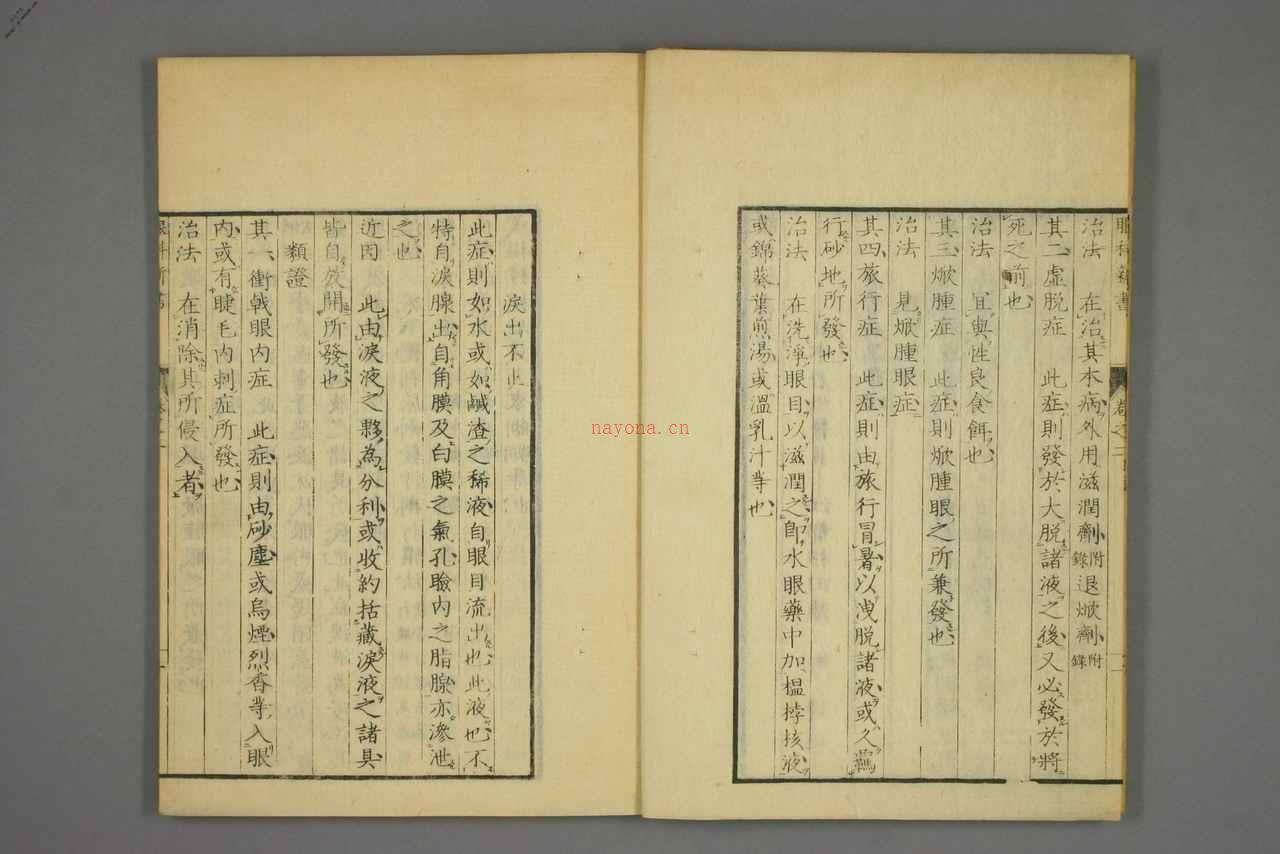 治法　在治其本病外用滋潤劑附錄退焮劑附錄
其二虛脫症　此症則發於大脫諸液之後又必發於將
死之前也
治法　宜與性良食餌也
其三焮腫症　此症則焮腫眼之所兼發也
治法　見焮腫眼症
其四旅行症　此症則由旅行冒暑以洩脫諸液或久羈
行砂地所發也
治法　在洗淨眼目以滋潤之即水眼藥中加榲桲核液
或錦葵葉煎湯或溫乳汁等也
淚出不止
此症則如水或如鹹渣之稀液自眼目流出也此液也不
特自淚腺出自角膜及白膜之氣孔瞼內之脂腺亦滲泄
之也
近因　此由淚液之夥為分利或收約括藏淚液之諸具
皆自發開所發也
類證
其一衝戟眼內症　此症則由砂塵或烏煙烈香等入眼
內或有睫毛內刺症所發也
治法　在消除其所侵入者
nayona.cn